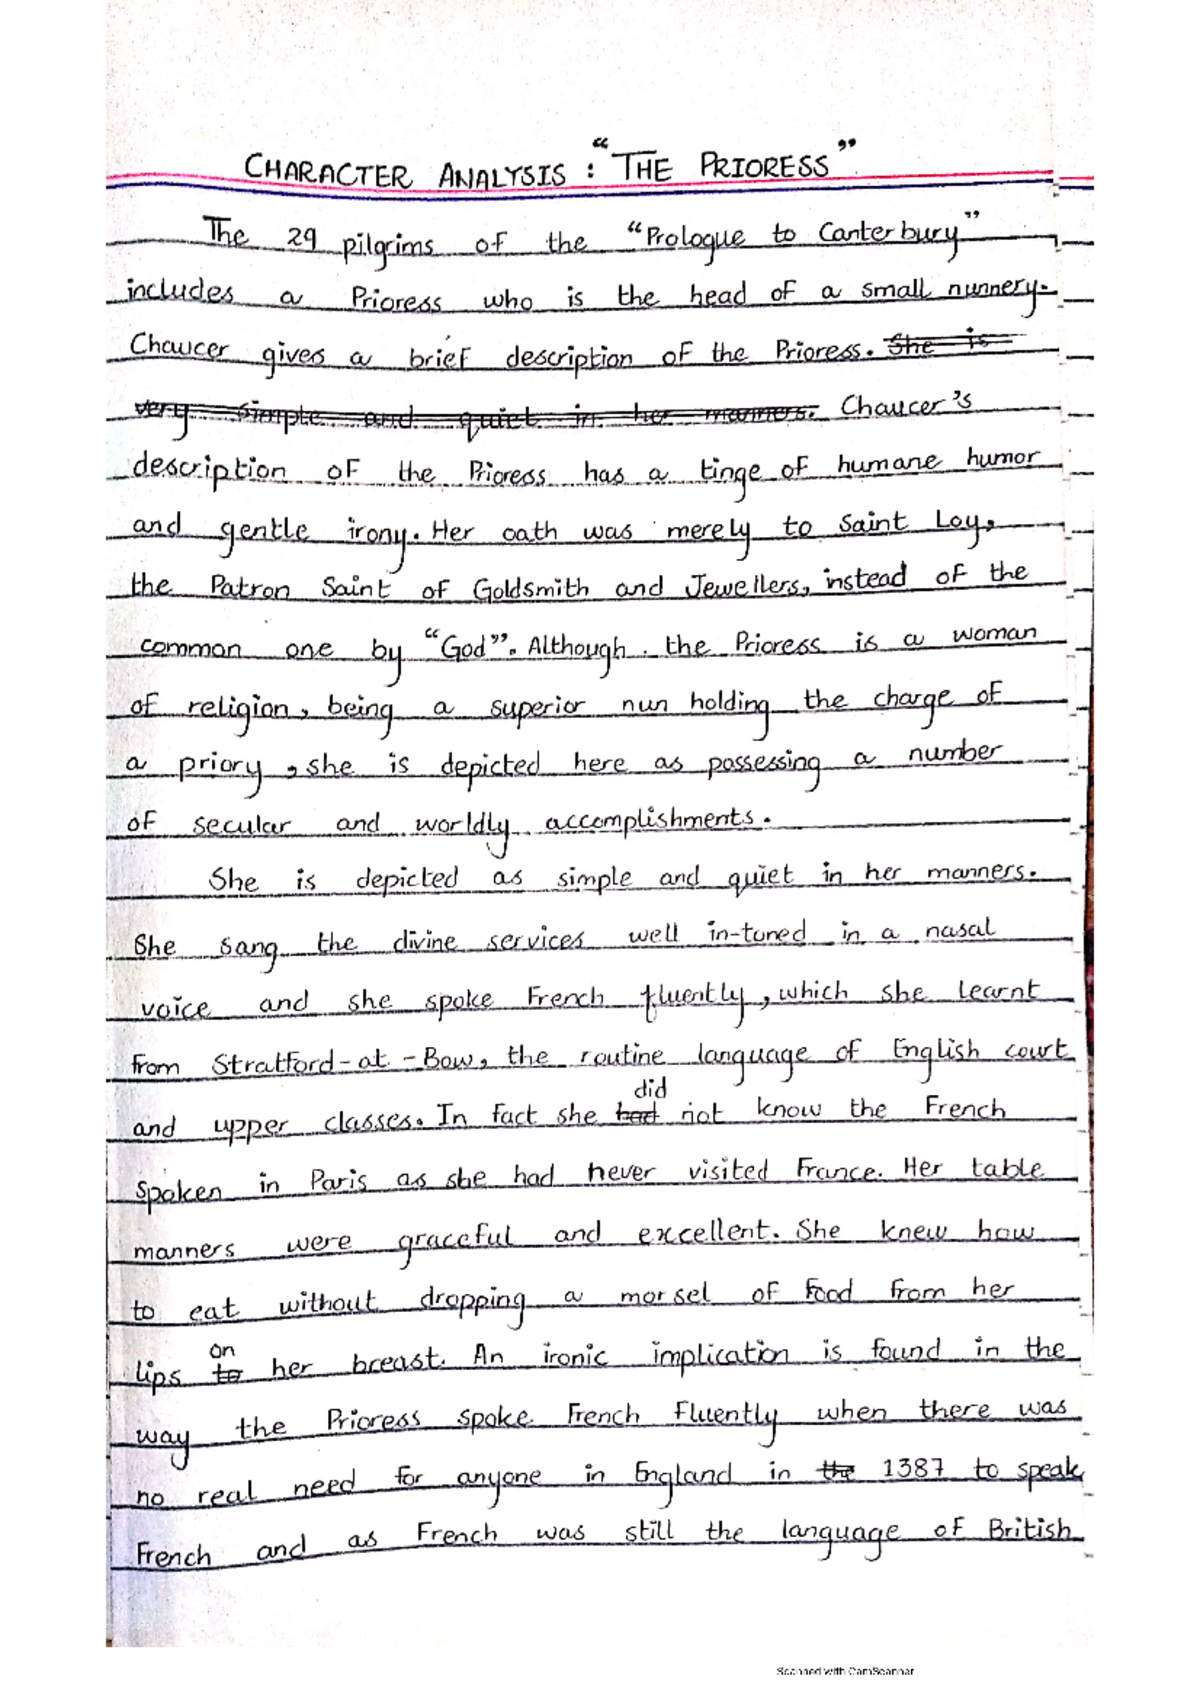 CHARACTER ANALYSIS : "THE PRIORESS"
The 29 pilgrims of the "Prologue to Canterbury"
includes a Prioress who is the head of a small nunnery.
Chaucer gives a brief description of the Prioress. ~~She is~~
~~very simple and quiet in her manners.~~ Chaucer's
description of the Prioress has a tinge of humane humor
and gentle irony. Her oath was merely to Saint Loy,
the Patron Saint of Goldsmith and Jewellers, instead of the
common one by "God". Although the Prioress is a woman
of religion, being a superior nun holding the charge of
a priory, she is depicted here as possessing a number
of secular and worldly accomplishments.
She is depicted as simple and quiet in her manners.
She sang the divine services well in-tuned in a nasal
voice and she spoke French fluently, which she learnt
from Stratford-at-Bow, the routine language of English court
did
and upper classes. In fact she ~~had~~ not know the French
spoken in Paris as she had never visited France. Her table
manners were graceful and excellent. She knew how
to eat without dropping a morsel of food from her
on
lips ~~to~~ her breast. An ironic implication is found in the
way the Prioress spoke French Fluently when there was
no real need for anyone in England in ~~the~~ 1387 to speak
French and as French was still the language of British
Scanned with CamScanner